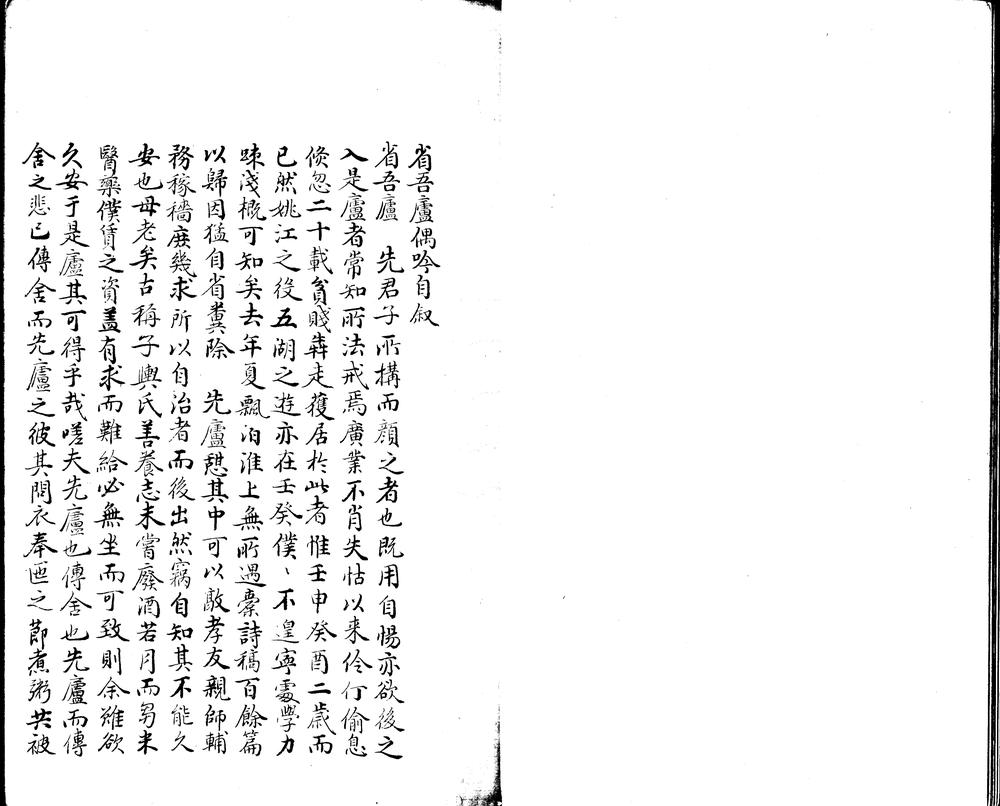 省吾廬偶吟自叙
省吾廬　先君子所構而顔之者也既用自惕亦欲後之
入是廬者常知所法戒焉廣業不肖失怙以来伶仃偷息
倏忽二十載貧賤犇走獲居於此者惟壬申癸酉二歲而
已然姚江之役五湖之遊亦在壬癸僕丶不遑寧處學力
踈淺概可知矣去年夏飄泊淮上無所遇橐詩稿百餘篇
以歸因猛自省糞除　先廬憇其中可以敬孝友親師輔
務稼穡庶幾求所以自治者而後出然竊自知其不能久
安也母老矣古稱子輿氏善養志未嘗廢酒若月而芻米
醫藥僕賃之資盖有求而難給必無坐而可致則余雖欲
久安于是廬其可得乎哉嗟夫先廬也傳舍也先廬而傳
舍之悲已傳舍而先廬之彼其問衣奉匜之節煮粥共被